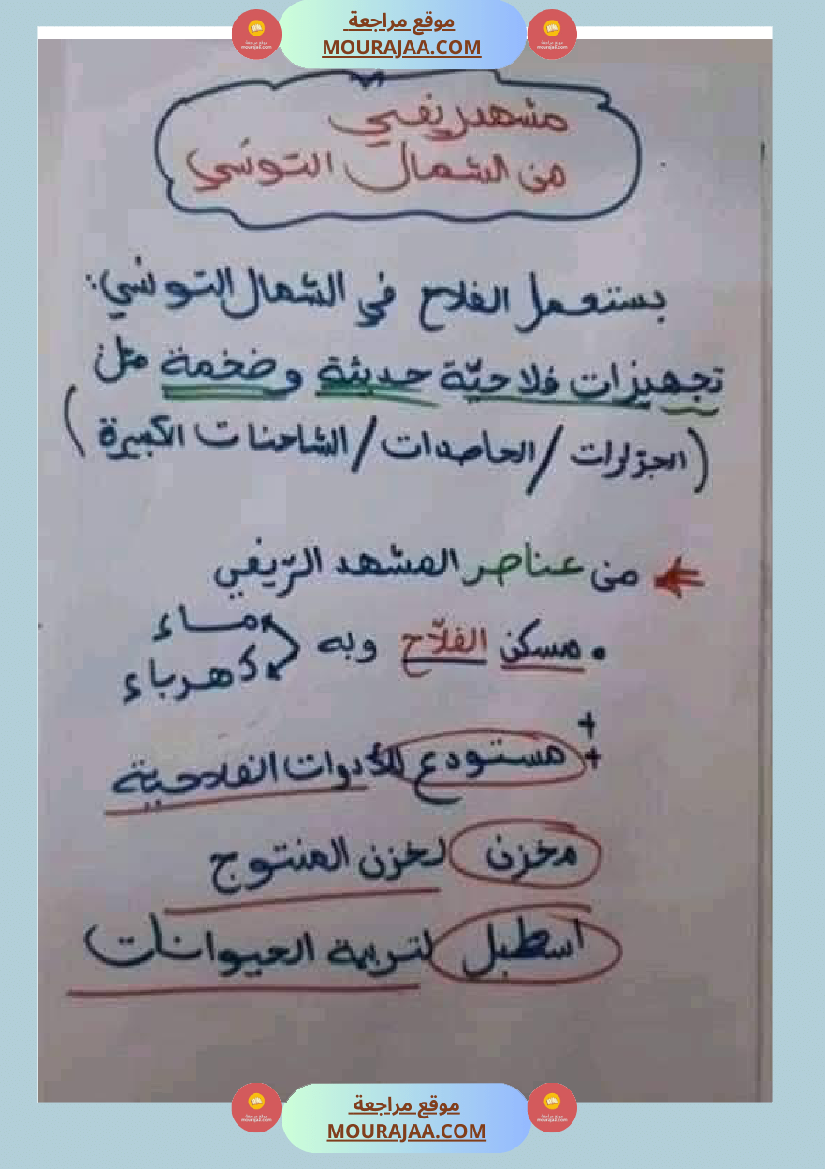 موقع مراجعة
MOURAJAA.COM
مشهد ريفي
من الشمال التونسي
يستعمل الفلاح في الشمال التونسي:
تجهيزات فلاحيّة حديثة وضخمة مثل
(الجرّارات / الحاصدات / الشاحنات الكبيرة)
من عناصر المشهد الرّيفي
• مسكن الفلاّح وبه
ماء
كهرباء
+
+ مستودع للأدوات الفلاحية
مخزن لخزن المنتوج
اسطبل لتربية الحيوانات
موقع مراجعة
MOURAJAA.COM